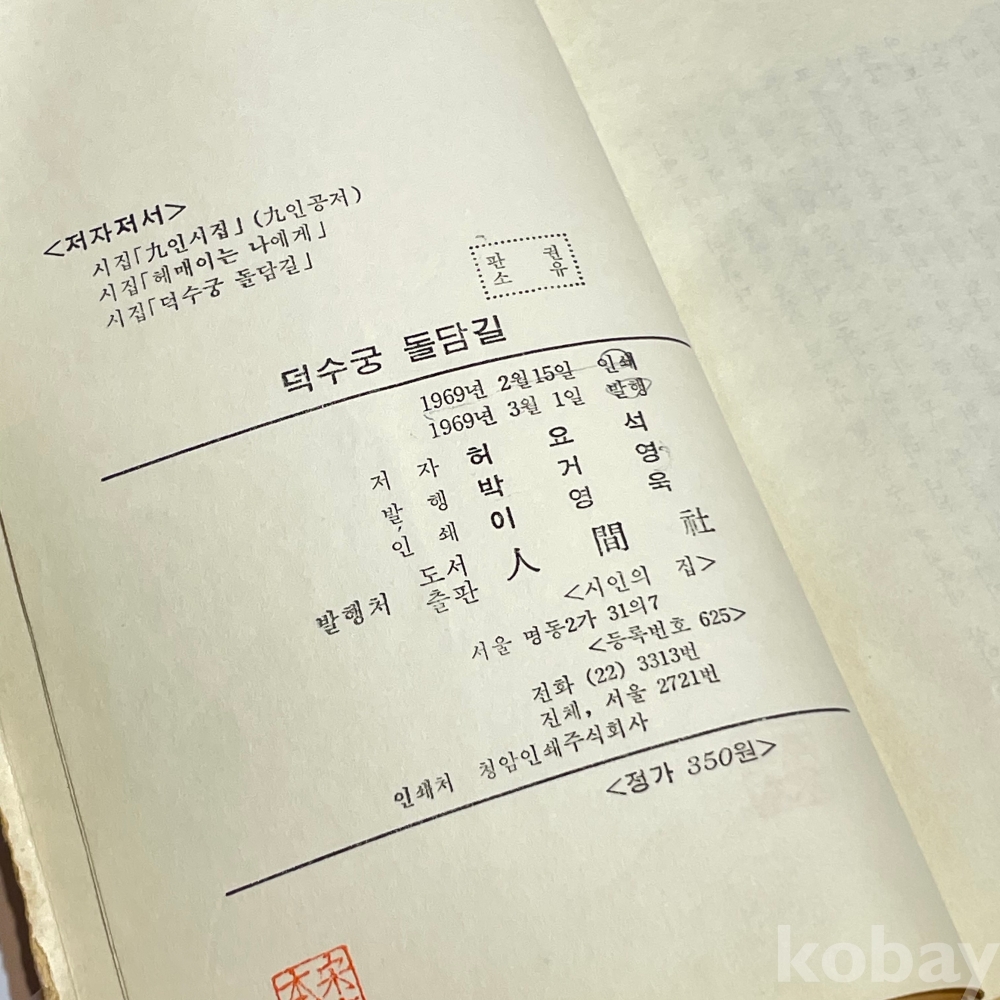 <저자저서>
시집「九인시집」(九인공저)
시집「헤매이는 나에게」
시집「덕수궁 돌담길」
판 권
소 유
덕수궁 돌담길
1969년 2월15일 인쇄
1969년 3월 1일 발행
저 자 허 요 석
발 행 박 거 영
인 쇄 이 영 욱
발행처 도서 출판 人 間 社
<시인의 집>
서울 명동2가 31의7
<등록번호 625>
전화 (22) 3313번
진체, 서울 2721번
인쇄처 청암인쇄주식회사
<정가 350원>
kobay